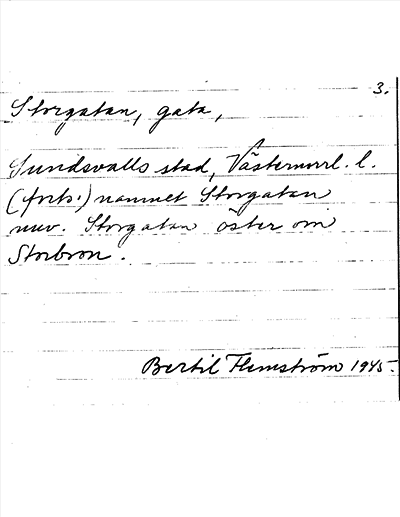 3.
Storgatan, gata,
Sundsvalls stad, Västernorrl. l.
(forts.) namnet Storgatan
nuv. Storgatan öster om
Storbron.
Bertil Flemström 1945.